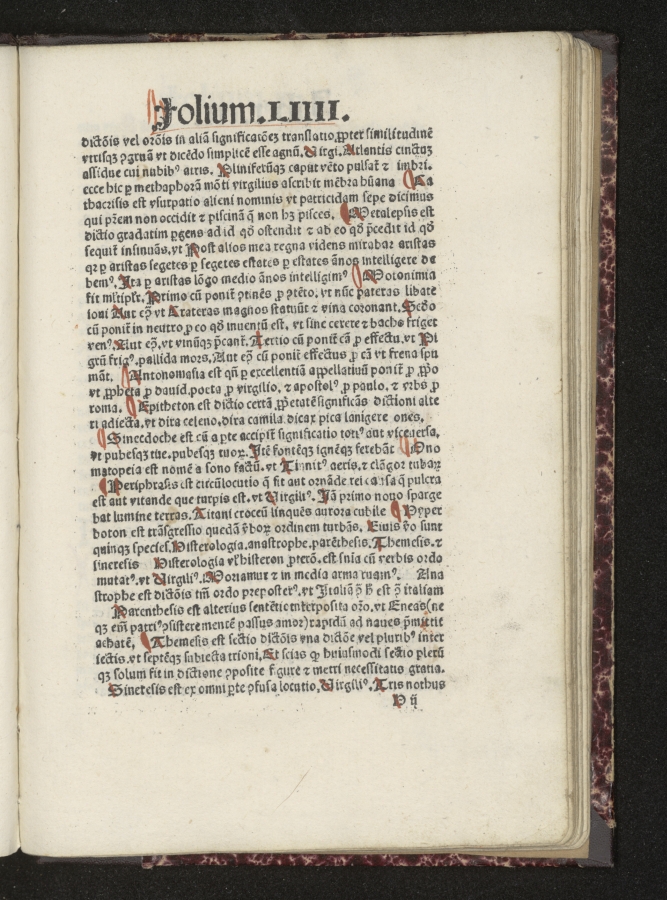 Folium.LIIII.
dictõis vel orõis in aliã significatiõeʒ translatio,ꝓpter similitudinẽ
vtriusqʒ ꝯgruã vt dicẽdo simplicẽ esse agnũ.Virgi.Atlantis cinctuʒ
assidue cui nubibꝰ atris. Piniferũqʒ caput vẽto pulsat̃ ⁊ imbri.
ecce hic ꝑ methaphorã mõti virgilius ascribit mẽbra hũana Ca
thacrisis est vsurpatio alieni nominis vt patricidam sepe dicimus
qui pr̃em non occidit ⁊ piscinã q̃ non hʒ pisces. Metalepsis est
dictio gradatim ꝑgens ad id qđ ostendit ⁊ ab eo qđ p̃cedit id qđ
sequit̃ insinuãs.vt Post alios mea regna videns mirabar aristas
qꝛ ꝑ aristas segetes ꝑ segetes estates ꝑ estates ãnos intelligere de
bemꝰ.Ita ꝑ aristas lõgo medio ãnos intelligimꝰ Motonimia
fit ml̃tipl̃r.Primo cũ ponit̃ ꝯtinẽs ꝓ ꝯtẽto.vt nũc pateras libate
ioui Aut eꝯ̃ vt Crateras magnos statuũt ⁊ vina coronant.Scđo
cũ ponit̃ in neutro ꝓ eo qđ inuentũ est. vt sine cerere ⁊ bacho friget
venꝰ.Aut eꝯ̃.vt vinũqʒ p̃cant̃.Tertio cũ ponit̃ cã ꝓ effectu.vt Pi
grũ frigꝰ.pallida mors.Aut eꝯ̃ cũ ponit̃ effectus ꝓ cã vt frena spu
mãt. Antonomasia est qñ ꝑ excellentiã appellatiuũ ponit̃ ꝓ ꝓpo
vt ꝓpheta ꝓ dauid.poeta ꝓ virgilio. ⁊ apostolꝰ ꝓ paulo. ⁊ vrbs ꝓ
roma. Epitheton est dictio certã ꝓpetatẽ significãs dictioni alte
ri adiecta.vt dira celeno.dira camila dicax pica lanigere oues.
Sinecdoche est cũ a ꝑte accipit̃ significatio totiꝰ aut viceuersa.
vt pubesqʒ tue.pubesqʒ tuoꝝ.Itẽ fontẽqʒ ignẽqʒ ferebãt Ono
matopeia est nomẽ a sono factũ.vt Tinnitꝰ aeris.⁊ clãgor tubaꝝ
Periphrasis est circũlocutio q̃ fit aut ornãde rei causa q̃ pulcra
est aut vitande que turpis est.vt Virgilꝰ. Iã primo nouo sparge
bat lumine terras.Titani croceũ linquẽs aurora cubile Hyper
boton est trãsgressio quedã v̓boꝝ ordinem turbãs. Euiꝰ v̓o sunt
quinqʒ species.Histerologia.anastrophe.parẽthesis.Themesis.⁊
sincresis Histerologia vl̓ histeron ꝓterõ.est snĩa cũ verbis ordo
mutatꝰ.vt Virgiliꝰ.Moriamur ⁊ in media arma ruamꝰ. Ana
strophe est dictõis tm̃ ordo preposterꝰ.vt Italiã ꝯ̃ h̃ est ꝯ̃ italiam
Parenthesis est alterius sentẽtie interposita orõ.vt Eneas(ne
qʒ em̃ patriꝰ ꝯsistere mentẽ passus amor)rapidũ ad naues p̃mittit
achatẽ. Themesis est sectio dictõis vna dictõe vel pluribꝰ inter
iectis.vt septẽqʒ subiecta trioni.Et scias ꝙ huiusmodi sectio pleru
qʒ solum fit in dictione ꝯposite figure ⁊ metri necessitatis gratia.
Sincresis est ex omni ꝑte ꝯfusa locutio.Virgiliꝰ.Tris nothus
H ij